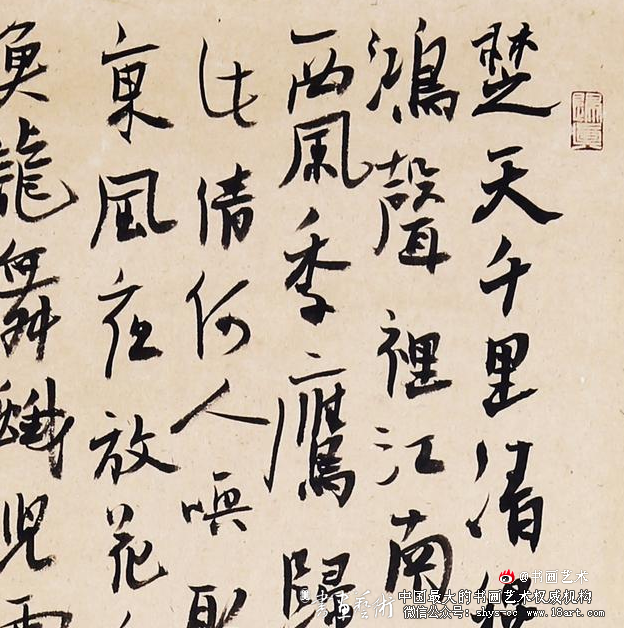 楚天千里清
鴻聲裡江南
西風季鷹歸
此倩何人喚取
東風夜放花
魚龍舞蛾兒雪
@书画艺术
書畫藝術
中国最大的书画艺术权威机构
微信公众号：shys-cc www.18art.com